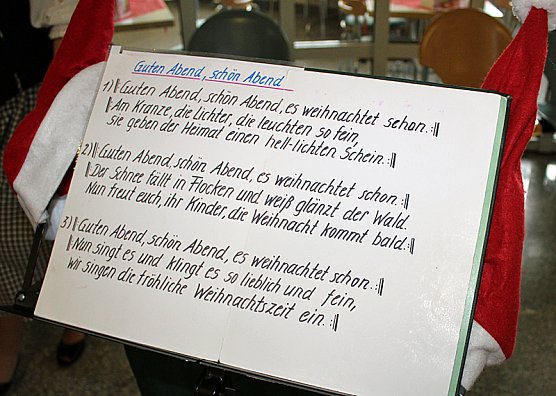 Guten Abend, schön Abend
1) 𝄆 Guten Abend, schön Abend, es weihnachtet schon. :||
||: Am Kranze, die Lichter, die leuchten so fein,
sie geben der Heimat einen hell-lichten Schein. :||
2) ||: Guten Abend, schön Abend, es weihnachtet schon. :||
||: Der Schnee fällt in Flocken und weiß glänzt der Wald.
Nun freut euch, ihr Kinder, die Weihnacht kommt bald. :||
3) ||: Guten Abend, schön Abend, es weihnachtet schon. :||
||: Nun singt es und klingt es so lieblich und fein,
wir singen die fröhliche Weihnachtszeit ein. :||